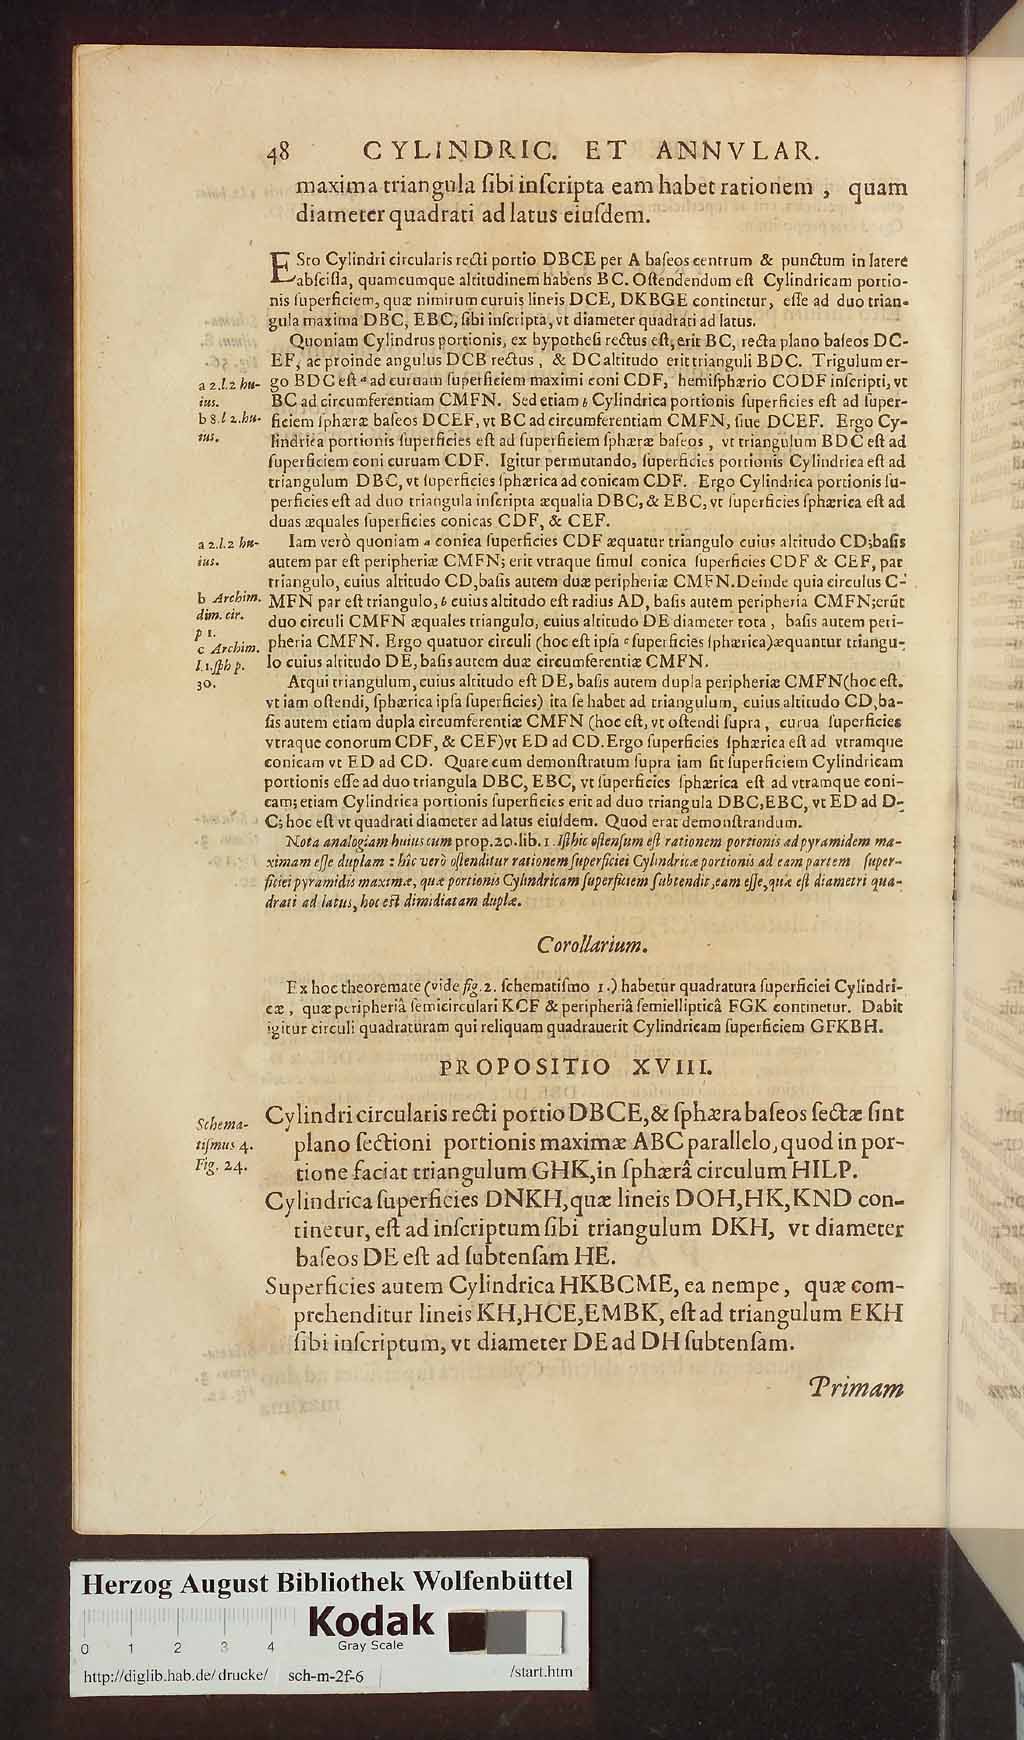 48 CYLINDRIC. ET ANNVLAR.
maxima triangula ſibi inſcripta eam habet rationem , quam
diameter quadrati ad latus eiuſdem.
ESto Cylindri circularis recti portio DBCE per A baſeos centrum & punctum in latere
abſciſſa, quamcumque altitudinem habens BC. Oſtendendum eſt Cylindricam portio-
nis ſuperficiem, quæ nimirum curuis lineis DCE, DKBGE continetur, eſſe ad duo trian-
gula maxima DBC, EBC, ſibi inſcripta, vt diameter quadrati ad latus.
Quoniam Cylindrus portionis, ex hypotheſi rectus eſt, erit BC, recta plano baſeos DC-
EF, ac proinde angulus DCB rectus , & DC altitudo erit trianguli BDC. Trigulum er-
a 2.l.2 hu-
ius.
go BDC eſt a ad curuam ſuperficiem maximi coni CDF, hemiſphærio CODF inſcripti, vt
BC ad circumferentiam CMFN. Sed etiam b Cylindrica portionis ſuperficies eſt ad ſuper-
b 8.l 2.hu-
ius.
ficiem ſphæræ baſeos DCEF, vt BC ad circumferentiam CMFN, ſiue DCEF. Ergo Cy-
lindrica portionis ſuperficies eſt ad ſuperficiem ſphæræ baſeos , vt triangulum BDC eſt ad
ſuperficiem coni curuam CDF. Igitur permutando, ſuperficies portionis Cylindrica eſt ad
triangulum DBC, vt ſuperficies ſphærica ad conicam CDF. Ergo Cylindrica portionis ſu-
perficies eſt ad duo triangula inſcripta æqualia DBC, & EBC, vt ſuperficies ſphærica eſt ad
duas æquales ſuperficies conicas CDF, & CEF.
a 2.l.2 hu-
ius.
Iam verò quoniam a conica ſuperficies CDF æquatur triangulo cuius altitudo CD;baſis
autem par eſt peripheriæ CMFN; erit vtraque ſimul conica ſuperficies CDF & CEF, par
triangulo, cuius altitudo CD,baſis autem duæ peripheriæ CMFN.Deinde quia circulus C-
b Archim.
dim. cir.
p 1.
MFN par eſt triangulo, b cuius altitudo eſt radius AD, baſis autem peripheria CMFN;erūt
duo circuli CMFN æquales triangulo, cuius altitudo DE diameter tota , baſis autem peri-
c Archim.
l.1.ſph p.
30.
pheria CMFN. Ergo quatuor circuli (hoc eſt ipſa c ſuperficies ſphærica)æquantur triangu-
lo cuius altitudo DE, baſis autem duæ circumferentiæ CMFN.
Atqui triangulum, cuius altitudo eſt DE, baſis autem dupla peripheriæ CMFN(hoc eſt,
vt iam oſtendi, ſphærica ipſa ſuperficies) ita ſe habet ad triangulum, cuius altitudo CD,ba-
ſis autem etiam dupla circumferentiæ CMFN (hoc eſt, vt oſtendi ſupra , curua ſuperficies
vtraque conorum CDF, & CEF)vt ED ad CD.Ergo ſuperficies ſphærica eſt ad vtramque
conicam vt ED ad CD. Quare cum demonſtratum ſupra iam ſit ſuperficiem Cylindricam
portionis eſſe ad duo triangula DBC, EBC, vt ſuperficies ſphærica eſt ad vtramque coni-
cam; etiam Cylindrica portionis ſuperficies erit ad duo triangula DBC,EBC, vt ED ad D-
C; hoc eſt vt quadrati diameter ad latus eiuſdem. Quod erat demonſtrandum.
Nota analogiam huius cum prop.20.lib.1. Iſthic oſtenſum eſt rationem portionis ad pyramidem ma-
ximam eſſe duplam : hîc verò oſtenditur rationem ſuperficiei Cylindricæ portionis ad eam partem ſuper-
ficiei pyramidis maximæ, quæ portionis Cylindricam ſuperficiem ſubtendit,eam eſſe,quæ eſt diametri qua-
drati ad latus, hoc eſt dimidiatam duplæ.
Corollarium.
Ex hoc theoremate (vide fig.2. ſchematiſmo 1.) habetur quadratura ſuperficiei Cylindri-
cæ , quæ peripheriâ ſemicirculari KCF & peripheriâ ſemiellipticâ FGK continetur. Dabit
igitur circuli quadraturam qui reliquam quadrauerit Cylindricam ſuperficiem GFKBH.
PROPOSITIO XVIII.
Schema-
tiſmus 4.
Fig. 24.
Cylindri circularis recti portio DBCE,& ſphæra baſeos ſectæ ſint
plano ſectioni portionis maximæ ABC parallelo, quod in por-
tione faciat triangulum GHK,in ſphærâ circulum HILP.
Cylindrica ſuperficies DNKH,quæ lineis DOH,HK,KND con-
tinetur, eſt ad inſcriptum ſibi triangulum DKH, vt diameter
baſeos DE eſt ad ſubtenſam HE.
Superficies autem Cylindrica HKBCME, ea nempe , quæ com-
prehenditur lineis KH,HCE,EMBK, eſt ad triangulum EKH
ſibi inſcriptum, vt diameter DE ad DH ſubtenſam.
Primam
Herzog August Bibliothek Wolfenbüttel
Kodak
Gray Scale
0 1 2 3 4
http://diglib.hab.de/drucke/ sch-m-2f-6 /start.htm